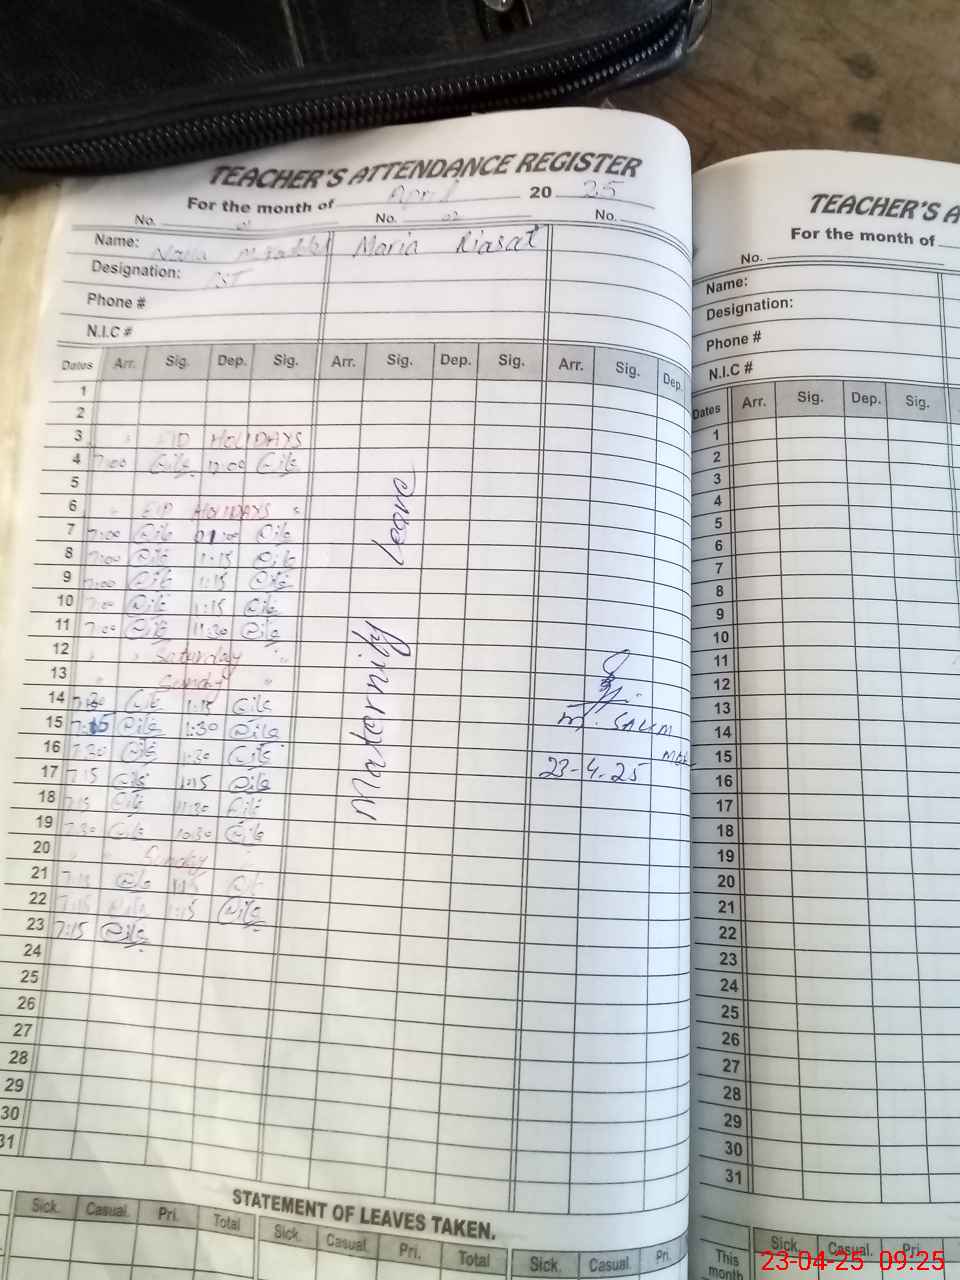 TEACHER'S ATTENDANCE REGISTER
For the month of April 20 25
No. No. 02 No.
Name: Maria Riasat
Designation: PST
Phone #
N.I.C #
Dates Arr. Sig. Dep. Sig. Arr. Sig. Dep. Sig. Arr. Sig. Dep.
1
2
3 EID HOLIDAYS
4 7:00 12:00
5
6 EID HOLIDAYS
7 7:00
8 7:00 1:15
9 7:00 1:15
10 7:00 1:15
11 7:00 11:30
12 Saturday
13 Sunday
14 7:30 1:15
15 7:15 1:30
16 7:30 1:30
17 7:15
18 7:15 11:30
19 7:30 10:30
20 Sunday
21 7:15 1:15
22 7:15 1:15
23 7:15
24
25
26
27
28
29
30
31
Maternity Leave
M. SALIM
23-4-25
STATEMENT OF LEAVES TAKEN.
Sick. Casual. Pri. Total Sick. Casual. Pri. Total Sick. Casual. Pri.
TEACHER'S A
For the month of
No.
Name:
Designation:
Phone #
N.I.C #
Dates Arr. Sig. Dep. Sig.
1
2
3
4
5
6
7
8
9
10
11
12
13
14
15
16
17
18
19
20
21
22
23
24
25
26
27
28
29
30
31
Sick. Casual. Pri.
This
month
23-04-25 09:25